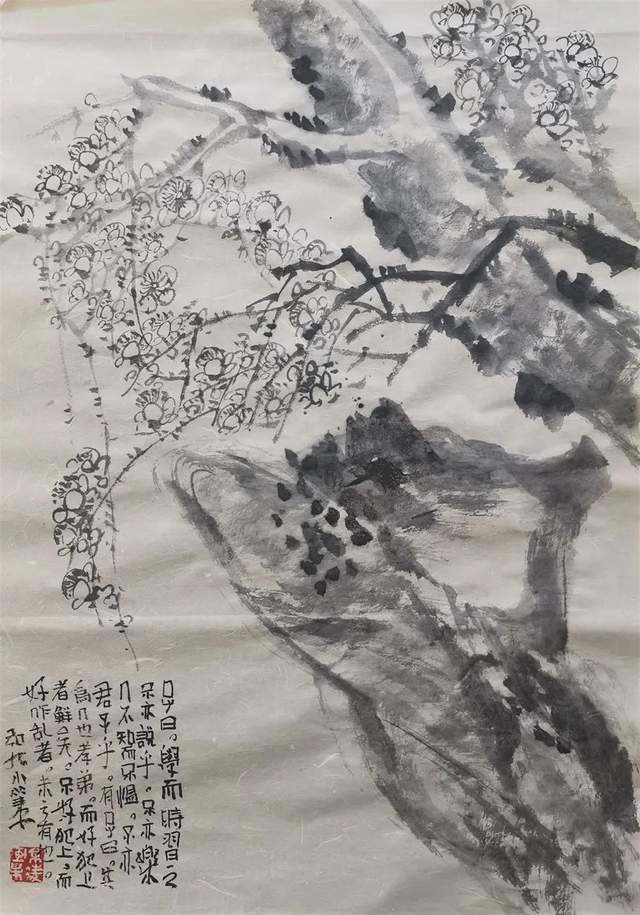 子曰。學而時習之
不亦說乎。不亦樂
人不知而不慍。不亦
君子乎。有子曰。其
為人也孝弟。而好犯上
者鮮矣。不好犯上。而
好作乱者。未之有也。